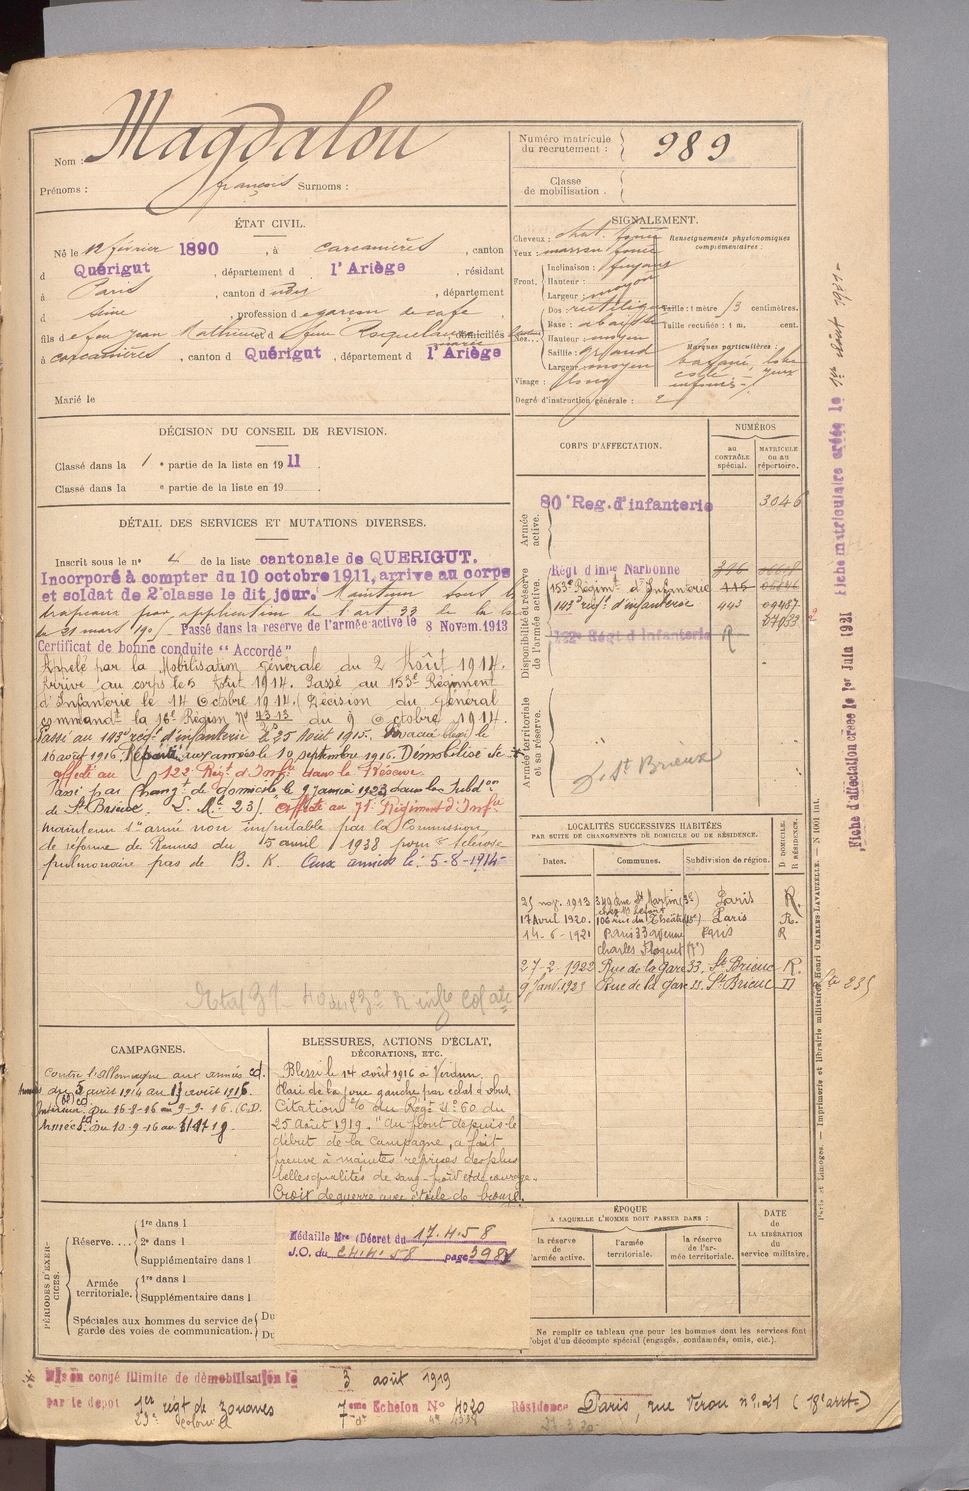 Nom : Magdalou
Prénoms : françois Surnoms :
Numéro matricule du recrutement : 989
Classe de mobilisation .
ÉTAT CIVIL.
Né le 12 février 1890 , à Carcanières , canton
d Quérigut , département d l'Ariège , résidant
à Paris , canton d , département
d Seine , profession d garçon de café
fils de feu Jean Mathieu et de Roquelaure , domiciliés
à Carcanières , canton d Quérigut , département d l'Ariège
Marié le
SIGNALEMENT.
Cheveux : chat. foncé
Yeux : marron foncé
Front, Inclinaison : fuyant
Hauteur : moyen
Largeur : moyen
Nez... Dos : rectiligne
Base : abaissée
Hauteur : moyen
Saillie : grand
Largeur : moyen
Visage : long
Renseignements physionomiques complémentaires :
Taille : 1 mètre centimètres.
Taille rectifiée : 1 m, cent.
Marques particulières :
Degré d'instruction générale : 2
DÉCISION DU CONSEIL DE REVISION.
Classé dans la 1 e partie de la liste en 1911 .
Classé dans la e partie de la liste en 19
DÉTAIL DES SERVICES ET MUTATIONS DIVERSES.
Inscrit sous le n° 4 de la liste cantonale de QUERIGUT.
Incorporé à compter du 10 octobre 1911, arrive au corps
et soldat de 2e classe le dit jour. Maintenu sous les
drapeaux par application de l'art 33 de la loi
du 21 mars 190 Passé dans la reserve de l'armée active le 8 Novem. 1913
Certificat de bonne conduite " Accordé "
Appelé par la Mobilisation générale du 2 Août 1914.
Arrivé au corps le 5 Août 1914. Passé au 153e Régiment
d'Infanterie le 14 Octobre 1914 (Décision du Général
commandt la 16e Région N° 4313 du 9 Octobre 1914.
Passé au 143e rég. d'infanterie le 25 Août 1915. Evacué le
16 août 1916. aux armées le 10 septembre 1916. Démobilisé
affecté au 122 Régt d'Infie dans la Réserve
Passé par changt de domicile le 9 janvier 1923 dans la Subdon
de St Brieuc. affecté au 71e Régiment d'Infie
maintenu non imputable par la Commission
de réforme de Rennes du 15 avril 1938 pour sclérose
pulmonaire pas de B. K. Aux armées le : 5-8-1914
CORPS D'AFFECTATION.
NUMÉROS
au CONTRÔLE spécial.
MATRICULE ou au répertoire.
Armée active.
80e Reg. d'infanterie 3046
Disponibilité et réserve de l'armée active.
Régt d'infie Narbonne
153e Régimt d'Infanterie
143e régt d'infanterie 443
122e Régt d'infanterie R
Armée territoriale et sa réserve.
St Brieux
LOCALITÉS SUCCESSIVES HABITÉES
PAR SUITE DE CHANGEMENTS DE DOMICILE OU DE RÉSIDENCE.
Dates. Communes. Subdivision de région. D DOMICILE. R RÉSIDENCE.
25 nov. 1913 rue St Martin (3e) Paris R.
17 Avril 1920. 106 rue du Théâtre Paris R.
14-6-1921 Paris 33 avenue Charles Floquet (7e) Paris R
27-2-1922 Rue de la gare 33. St Brieuc R.
9 Janv. 1923 Rue de la gare 33. St Brieuc D
CAMPAGNES.
Contre l'Allemagne aux armées cd.
du 5 août 1914 au 15 août 1916.
Intérieur du 16-8-16 au 9-9-16. (C.D.
Armées du 10-9-16 au
BLESSURES, ACTIONS D'ÉCLAT,
DÉCORATIONS, ETC.
Blessé le 14 août 1916 à Verdun.
Plaie de la joue gauche par éclat d'obus.
Citation du Régt N° 60 du
25 Août 1919. "Au front depuis le
début de la Campagne, a fait
preuve à maintes reprises des plus
belles qualités de sang-froid et de courage.
Croix de guerre avec étoile de bronze.
Médaille Mre (Décret du 17.4.58
J.O. du 24.4.58 page
PÉRIODES D'EXERCICES.
Réserve.... 1re dans l
2e dans l
Supplémentaire dans l
Armée territoriale. 1re dans l
Supplémentaire dans l
Spéciales aux hommes du service de garde des voies de communication. Du
Du
ÉPOQUE
A LAQUELLE L'HOMME DOIT PASSER DANS :
la réserve de l'armée active.
l'armée territoriale.
la réserve de l'armée territoriale.
DATE de LA LIBÉRATION du service militaire.
Ne remplir ce tableau que pour les hommes dont les services font l'objet d'un décompte spécial (engagés, condamnés, omis, etc.).
Mis en congé illimité de démobilisation le 3 août 1919
par le dépot 1er régt de zouaves 7eme Echelon N° 4020 Résidence Paris, rue Véron n° 21 (18e arrt)
Fiche d'affectation créée le 1er Juin 1921
Fiche matriculaire créée le
Paris et Limoges. — Imprimerie et librairie militaires Henri CHARLES-LAVAUZELLE.